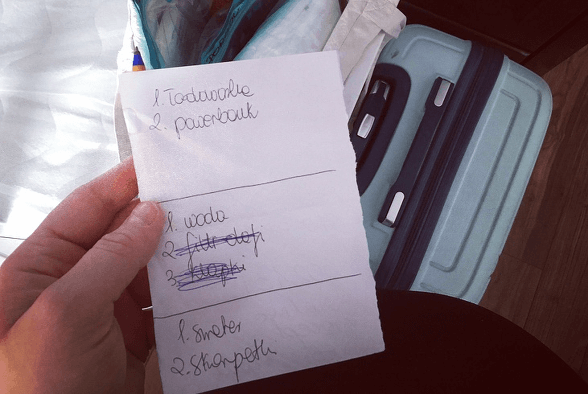 1. Ładowarka
2. powerbank
1. woda
2. filtr do
3. klapki
1. Sweter
2. Skarpetki